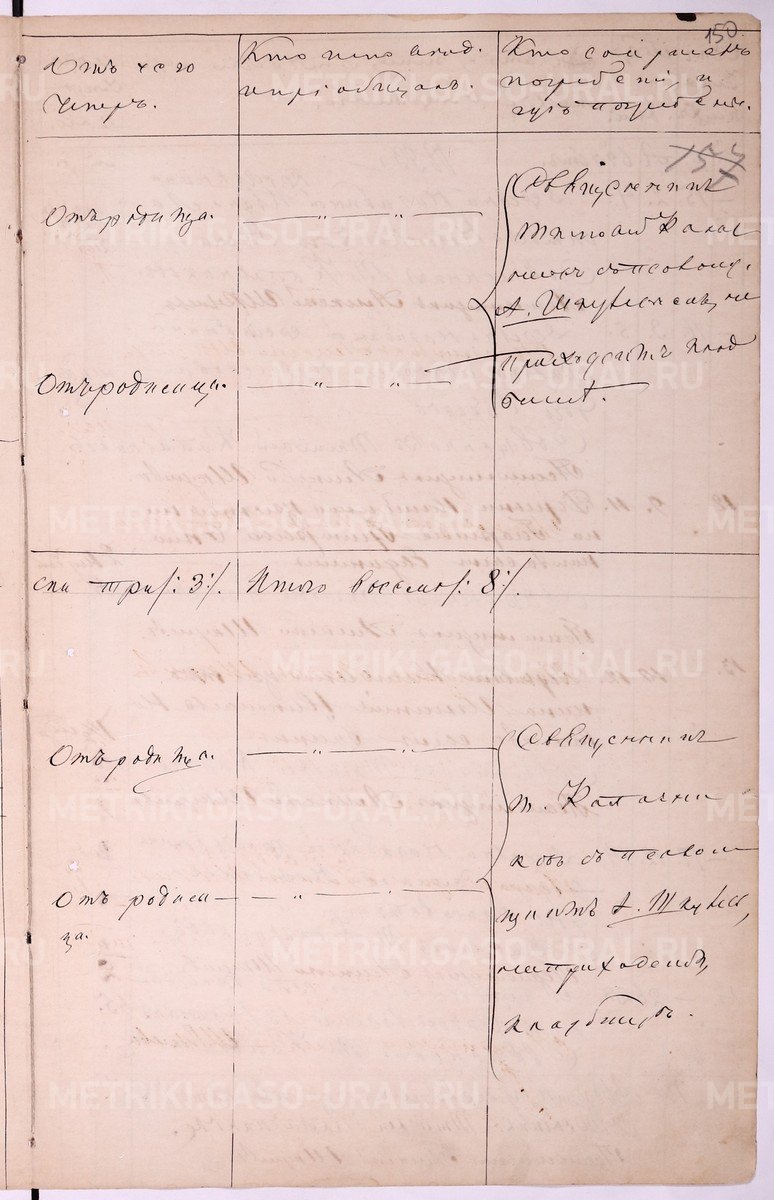 150.
Отъ чего
умеръ.
Кто исповѣд.
и пріобщалъ.
Кто совершалъ
погребеніе и
гдѣ погребены.
157
Отъ родимца.
Священникъ
Тимоѳей Калач
никовъ съ псаломщ.
А. Шкулевымъ, на
приходскомъ клад
бищѣ.
Отъ родимца.
ски три /:3:/. Итого восемь /:8:/.
Отъ родимца.
Священникъ
Т. Калачни
ковъ съ псалом
щикомъ А. Шкулев,
на приходскомъ
кладбищѣ.
Отъ родим
ца.
METRIKI.GASO-URAL.RU